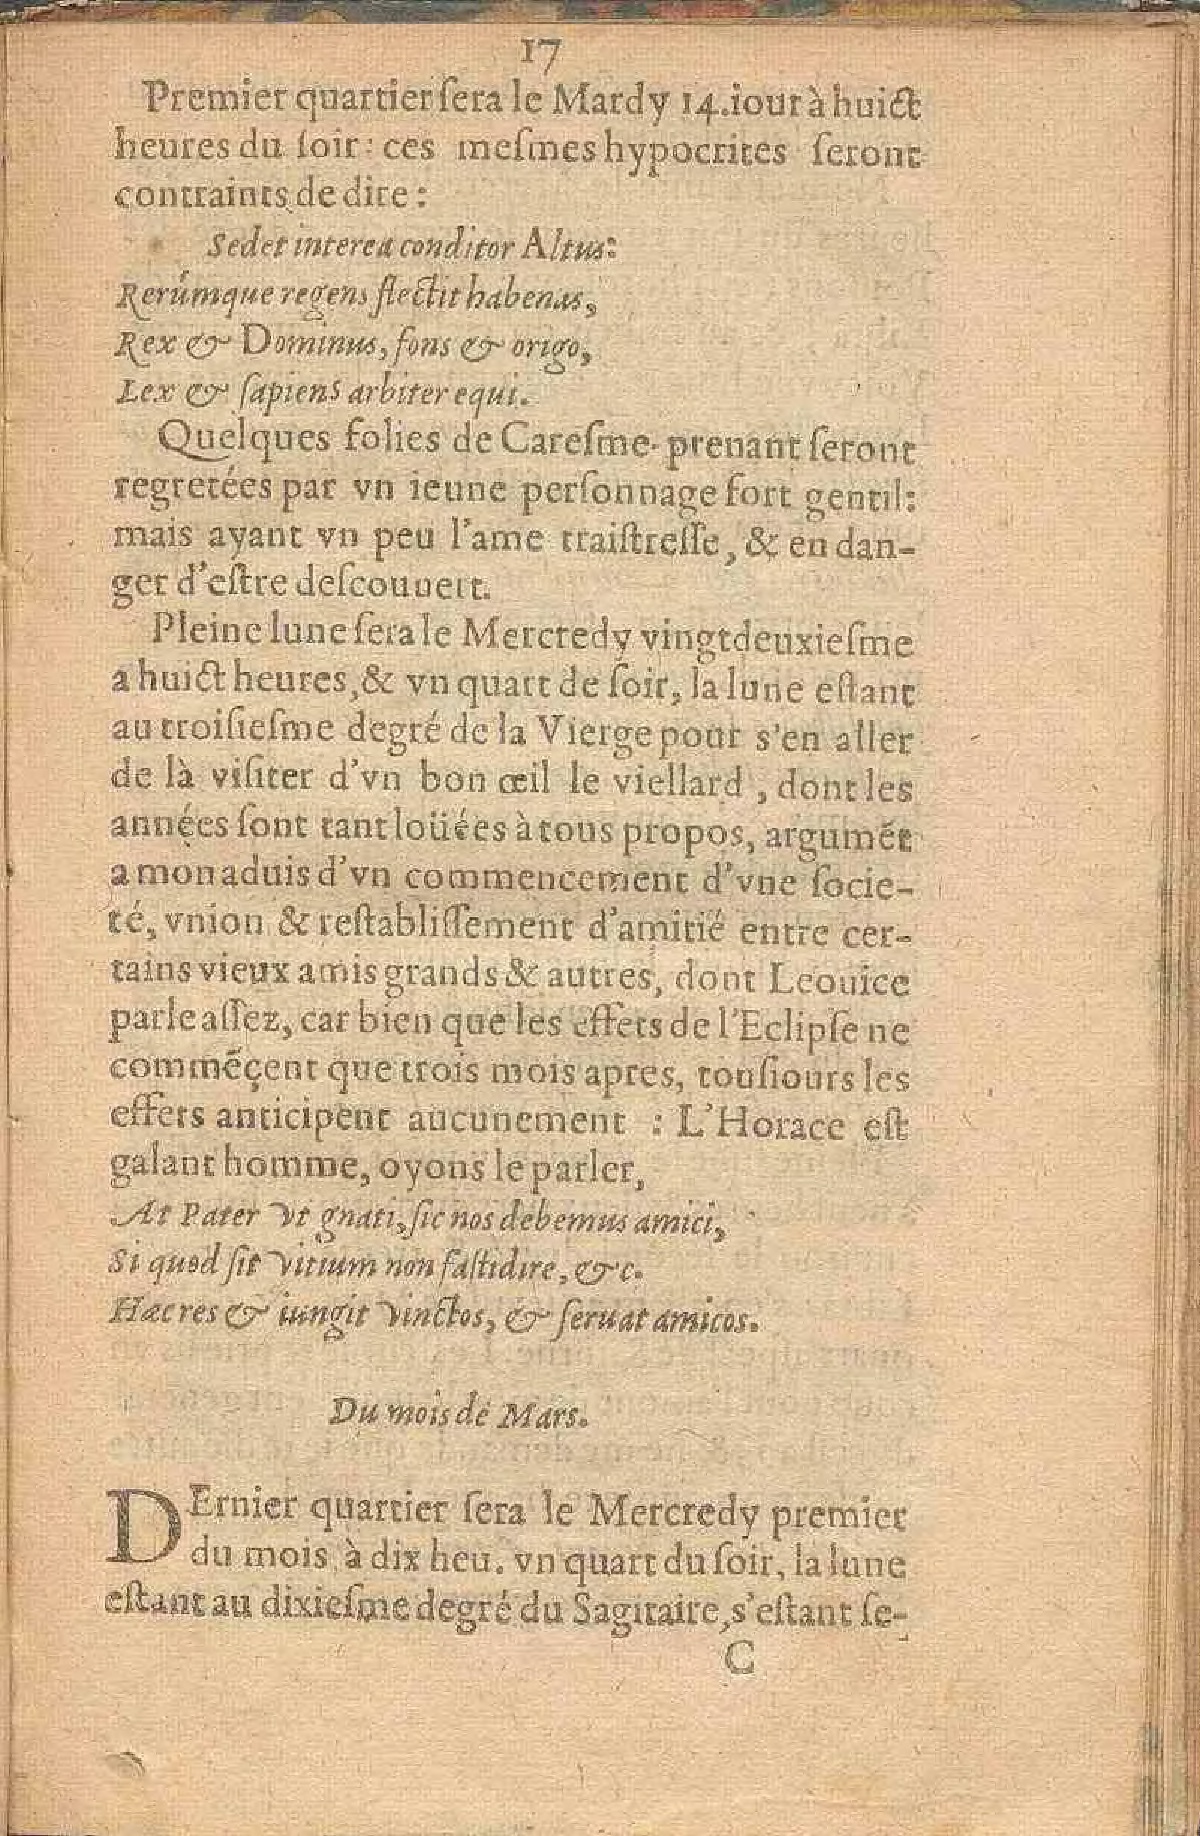 17
Premier quartier ſera le Mardy 14. iour à huict
heures du ſoir: ces meſmes hypocrites ſeront
contraints de dire:
Sedet interea conditor Altus:
Rerúmque regens flectit habenas,
Rex & Dominus, fons & origo,
Lex & ſapiens arbiter equi.
Quelques folies de Careſme-prenant ſeront
regretées par vn ieune perſonnage fort gentil:
mais ayant vn peu l'ame traiſtreſſe, & en dan-
ger d'eſtre deſcouuert.
Pleine lune ſera le Mercredy vingtdeuxieſme
a huict heures, & vn quart de ſoir, la lune eſtant
au troiſieſme degré de la Vierge pour s'en aller
de là viſiter d'vn bon œil le viellard, dont les
années ſont tant loüées à tous propos, argumẽt
a mon aduis d'vn commencement d'vne ſocie-
té, vnion & reſtabliſſement d'amitié entre cer-
tains vieux amis grands & autres, dont Leouice
parle aſſez, car bien que les effets de l'Eclipſe ne
commẽçent que trois mois apres, touſiours les
effets anticipent aucunement : L'Horace eſt
galant homme, oyons le parler,
At Pater vt gnati, ſic nos debemus amici,
Si quod ſit vitium non faſtidire, &c.
Hæc res & iungit vinctos, & ſeruat amicos.
Du mois de Mars.
DErnier quartier ſera le Mercredy premier
du mois à dix heu. vn quart du ſoir, la lune
eſtant au dixieſme degré du Sagitaire, s'eſtant ſe-
C